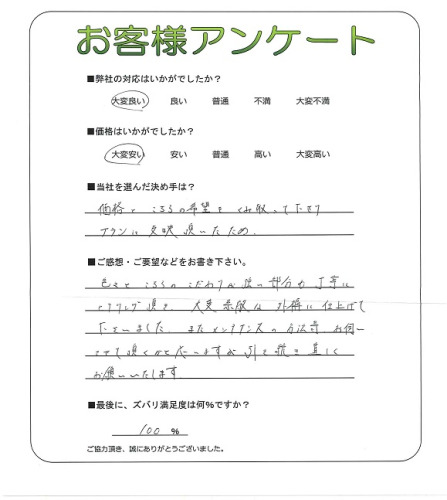 お客様アンケート
■弊社の対応はいかがでしたか？
大変良い 良い 普通 不満 大変不満
■価格はいかがでしたか？
大変安い 安い 普通 高い 大変高い
■当社を選んだ決め手は？
価格と こちらの希望を くみ取って下さり
プランに反映頂いたため。
■ご感想・ご要望などをお書き下さい。
色々と こちらの こだわりが強い部分も 丁寧に
ヒアリング頂き、大変 素敵な 外構に 仕上げて
下さいました。また メンテナンスの 方法等、お伺い
させて頂くかと思いますが 引き続き 宜しく
お願いいたします
■最後に、ズバリ満足度は何%ですか？
100 %
ご協力頂き、誠にありがとうございました。